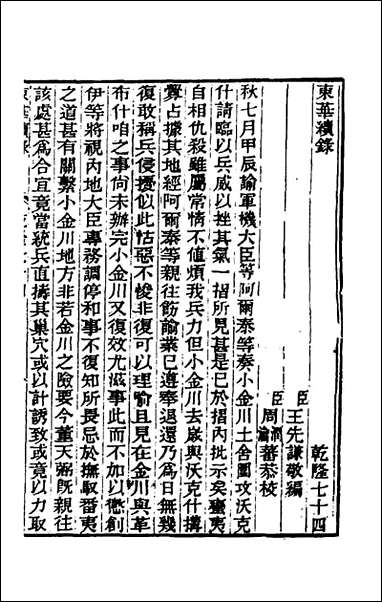 東華續錄
乾隆七十四
臣王先謙敬編
臣周潤蕃周瀹蕃恭校
秋七月甲辰諭軍機大臣等阿爾泰等奏小金川土舍圍攻沃克
什請臨以兵威以挫其氣一摺所見甚是已於摺內批示矣蠻夷
自相仇殺雖屬常情不值煩我兵力但小金川去歲與沃克什搆
釁占據其地經阿爾泰等親往飭諭業已遵奉退還乃爲日無幾
復敢稱兵侵擾似此怙惡不悛非復可以理諭且見在金川與革
布什咱之事尙未辦完小金川又復效尤滋事此而不加以懲創
伊等將視內地大臣專務調停和事不復知所畏忌於撫馭番夷
之道甚有關繫小金川地方非若金川之險要今董天弼旣親往
該處甚爲合宜竟當統兵直擣其巢穴或以計誘致或竟以力取